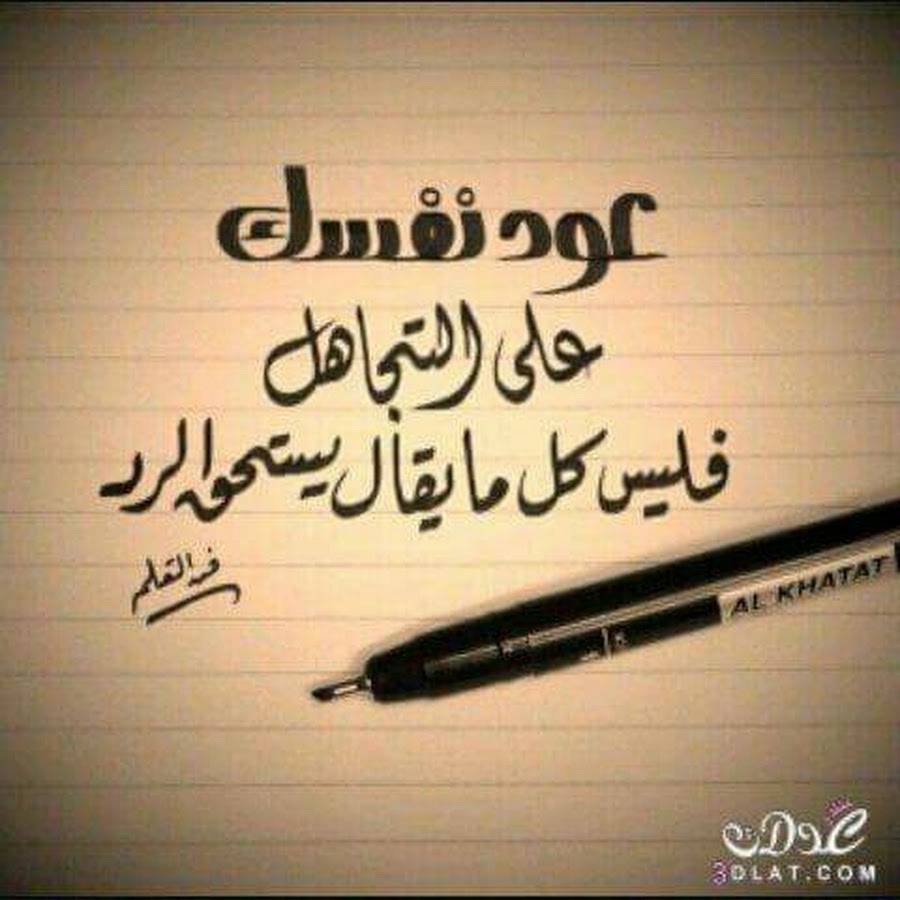 عود نفسك
على التجاهل
فليس كل ما يقال يستحق الرد
فن التعلم
AL KHATAT
عدلات
3DLAT.COM